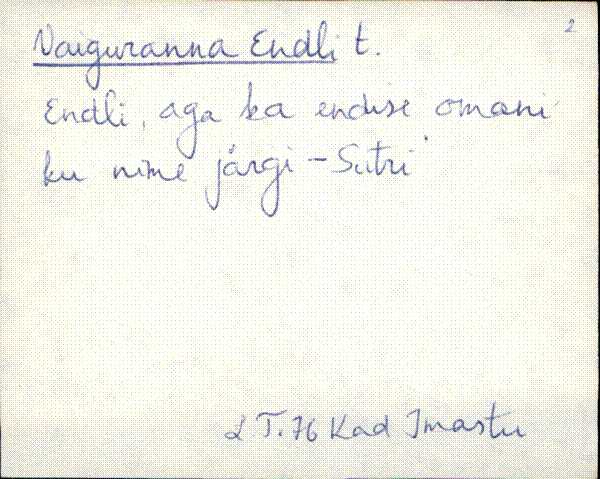 2
Vaiguranna Endli t.
Endli, aga ka endise omani
ku nime järgi - Sutri
L T. 76 Kad Imastu